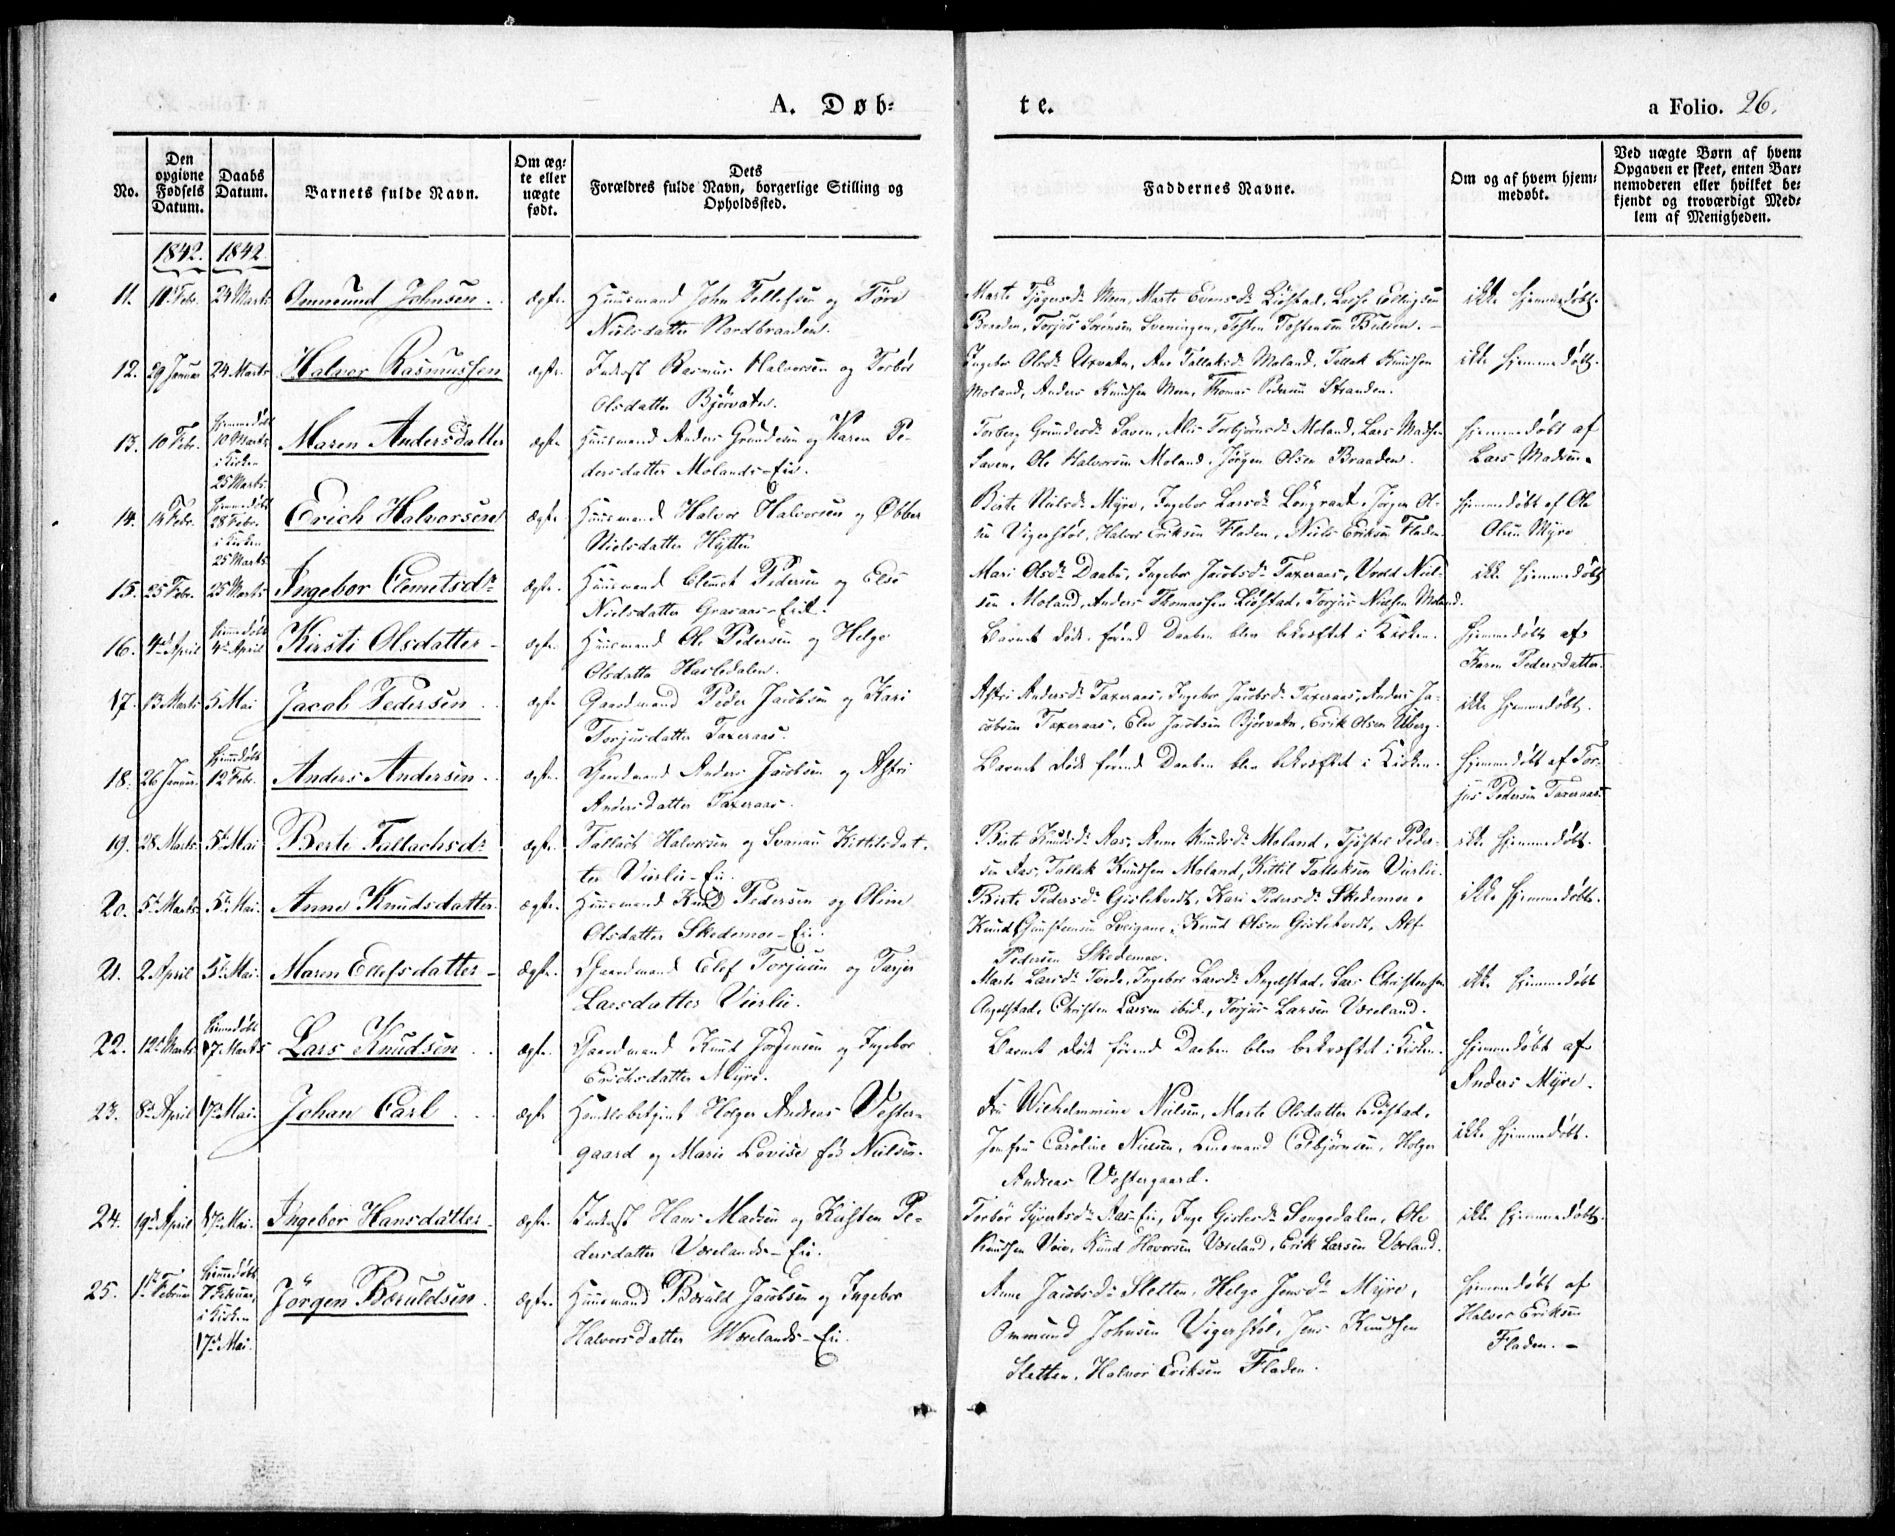 A. Døb-
te.
a Folio. 26.
No.
Den opgivne Fødsels Datum.
Daabs Datum.
Barnets fulde Navn.
Om ægte eller uægte født.
Dets
Forældres fulde Navn, borgerlige Stilling og
Opholdssted.
Faddernes Navne.
Om og af hvem hjem-
medøbt.
Ved uægte Børn af hvem
Opgaven er skeet, enten Bar-
nemoderen eller hvilket be-
kjendt og troværdigt Med-
lem af Menigheden.
1842. 1842.
11. 10 Febr. 24 Marts Ommund Johnsen. ægte. Huusmand John Tellefsen og Tøre
Nielsdatter Nordbraaden.
Marte Moen, Marte Evensdr Liøstad, Ellingsen
Braaden, Torjus Sørensen Sveningen, Tosten Tostensen
ikke hjemmedøbt.
12. 29 Januar 24 Marts Halvor Rasmussen ægte. Inderst Rasmus Halvorsen og Torbor
Olsdatter Bjørvatn.
Ingebor Olsdr Uxvatn, Ane Tallaksdr Moland, Tellak Knudsen
Moland, Anders Knudsen Moen, Thomas Pedersen Stranden.
ikke hjemmedøbt.
13. 10 Febr. hjemmedøbt 10 Marts i Kirken 25 Marts. Maren Andersdatter ægte. Huusmand Anders Gundersen og Karen Pe-
dersdatter Molands-Eie.
Torberg Gundersdr Saven, Alis Torbjørnsdr Moland, Lars Madsen
Saven, Ole Halvorsen Moland, Jørgen Olsen Braaden.
hjemmedøbt af
Lars Madsen.
14. 14 Febr. hjemmedøbt 28 Febr. i Kirken 25 Marts. Erich Halvorsen ægte. Huusmand Halvor Halvorsen og Ebber
Nielsdatter Hytten
Berte Nielsdr Myre, Ingebor Larsdr Jørgen Ol-
sen Vigerstøl, Halvor Eriksen Fladen, Niels Eriksen Fladen
hjemmedøbt af Ole
Olsen Myre
15. 25 Febr. 25 Marts Ingebor Clemetsdr ægte. Huusmand Clemet Pedersen og Else
Nielsdatter Graraas-Eie.
Mari Olsdr Daabu, Ingebor Jacobsdr Taxeraas, Niel-
sen Moland, Anders Thomassen Liøstad, Torjus Nielsen Moland.
ikke hjemmedøbt
16. 4de April hjemmedøbt 4de April Kirsti Olsdatter ægte. Huusmand Ole Pedersen og Helge
Olsdatter Hasledalen.
Barnet døde, førend Daaben blev bekræftet i Kirken.
hjemmedøbt af
Karen Pedersdatter.
17. 13 Marts 5 Mai Jacob Pedersen ægte Gaardmand Peder Jacobsen og Kari
Torjusdatter Taxeraas.
Astri Andersdr Taxeraas, Ingebor Jacobsdr Taxeraas, Anders Ja-
cobsen Taxeraas, Elev Jacobsen Bjørvatn, Erik Olsen Uberg.
ikke hjemmedøbt.
18. 26 Januar. hjemmedøbt 12 Febr. Anders Andersen ægte. Gaardmand Anders Jacobsen og Astri
Andersdatter Taxeraas.
Barnet døde førend Daaben blev bekræftet i Kirken.
hjemmedøbt af Tor-
jus Pedersen Taxeraas.
19. 28 Marts 5te Mai Berte Tallachsdr ægte. Tallach Halvorsen og Svanau Kittilsdat-
ter Vierlie-Eie.
Berte Knudsdr Aas, Anne Knudsdr Moland, Tjøstel Peder-
sen Aas, Tallak Knudsen Moland, Kittil Tallaksen Vierlie.
ikke hjemmedøbt.
20. 5te Marts 5te Mai. Anne Knudsdatter ægte. Huusmand Knud Pedersen og Oline
Olsdatter Skedemoe-Eie.
Berte Pedersdr Gislekvedt, Kari Pedersdr Skedemoe,
Knud Gunstensen Sveigane, Knud Olsen Gislekvedt, Alf
Pedersen Skedemoe.
ikke hjemmedøbt.
21. 2 April 5te Mai. Maren Ellefsdatter ægte. Gaardmand Ellef Torjusen og Tarjer
Larsdatter Vierlie.
Marte Larsdr Tvede, Ingebor Larsdr Angelstad, Lars Christensen
Angelstad, Christen Larsen ibid., Torjus Larsen Væreland.
ikke hjemmedøbt
22. 12te Marts hjemmedøbt 17 Marts Lars Knudsen ægte. Gaardmand Knud Jørgensen og Ingebor
Erichsdatter Myre.
Barnet døde førend Daaben blev bekræftet i Kirken.
hjemmedøbt af
Anders Myre.
23. 8de April 17de Mai. Johan Carl ægte Handelsbetjent Holger Andreas Vester-
gaard og Marie Lovise fød Nielsen.
Fru Wilhelmmine Nielsen, Marte Olsdatter Liøstad,
Jomfru Caroline Nielsen, Lensmand Colbjørnsen, Holger
Andreas Vestergaard.
ikke hjemmedøbt.
24. 19de April 17de Mai. Ingebor Hansdatter ægte. Inderst Hans Madsen og Kirsten Pe-
dersdatter Værelands-Eie.
Torbor Syvertsdr Aas-Eie, Inge Gislesdr Songedalen, Ole
Knudsen Veie, Knud Hovorsen Væreland, Erik Larsen Væreland.
ikke hjemmedøbt.
25. 1ste Februar hjemmedøbt 7 Februar, i Kirken 17de Mai. Jörgen Bæruldsen ægte. Huusmand Bæruld Jacobsen og Ingebor
Halvorsdatter Wærelands-Eie.
Anne Jacobsdr Sletten, Helge Jensdr Myre,
Ommund Johnsen Vigerstøl, Jens Knudsen
Sletten, Halvor Eriksen Fladen.
hjemmedøbt af
Halvor Eriksen
Fladen.